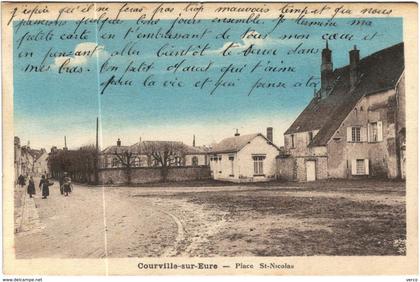 j'espère qu'il ne fera pas trop mauvais temps et que
pourrons quelques jours ensemble. Je termine ma
petite carte en t'embrassant de tout mon cœur et
en pensant aller bientôt te revoir dans
mes bras. En toi qui t'aime
pour la vie et qui pense a toi
Courville-sur-Eure — Place St-Nicolas